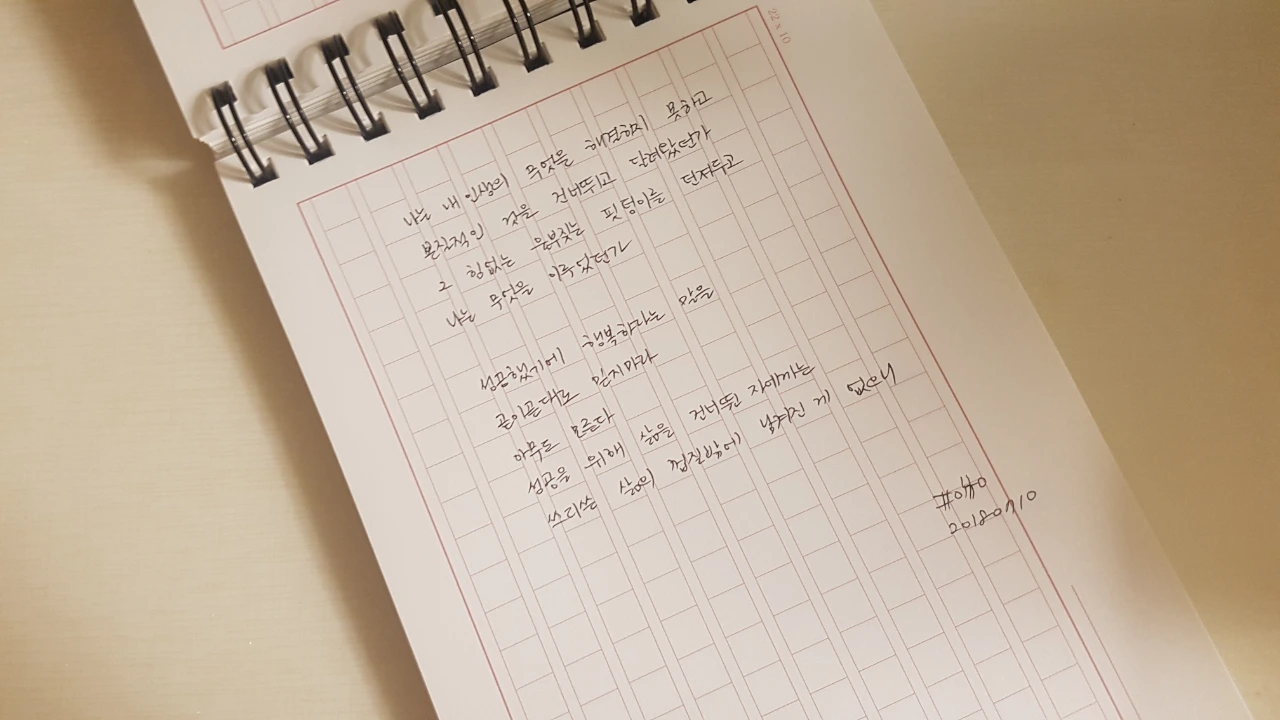 22 x 10
나는 내 인생의 무엇을 해결하지 못하고
본질적인 것을 건너뛰고 달려왔던가
그 힘없는 울부짖는 핏덩이를 던져두고
나는 무엇을 이루었던가
성공했기에 행복하다는 말을
곧이곧대로 믿지마라
아무도 모른다
성공을 위해 삶을 건너뛴 자에게는
쓰디쓴 삶의 껍질밖에 남겨진 게 없으니
20180710